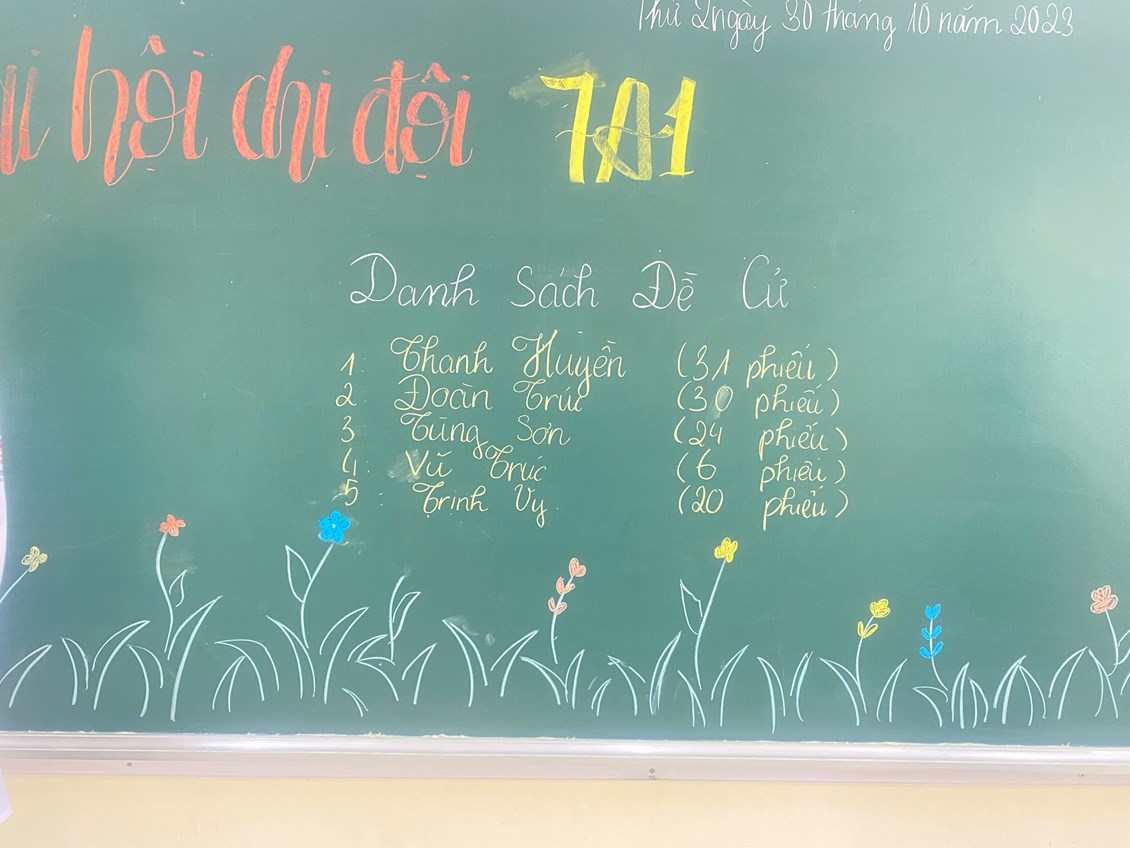 Thứ 2 ngày 30 tháng 10 năm 2023
hội chi đội 7A1
Danh Sách Đề Cử
1. Thanh Huyền (31 phiếu)
2. Đoàn Trúc (30 phiếu)
3 Tùng Sơn (24 phiếu)
4. Vũ Trúc (6 phiếu)
5. Trịnh Vy. (20 phiếu)